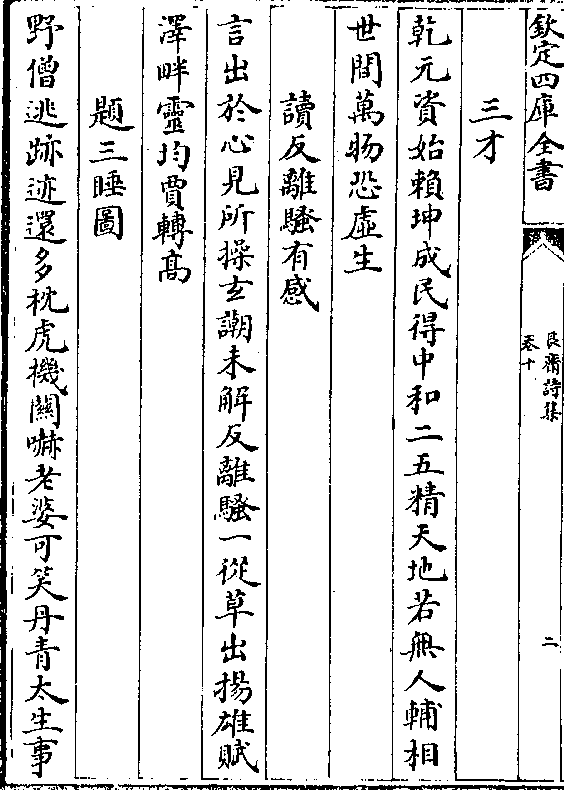 欽定四庫全書
艮齋詩集
卷十
二
三才
乾元資始賴坤成民得中和二五精天地若無人輔相
世間萬物恐虛生
讀反離騷有感
言出於心見所操玄謿未解反離騷一從草出揚雄賦
澤畔靈均賈轉高
題三睡圖
野僧逃跡迹還多枕虎機關嚇老婆可笑丹青太生事